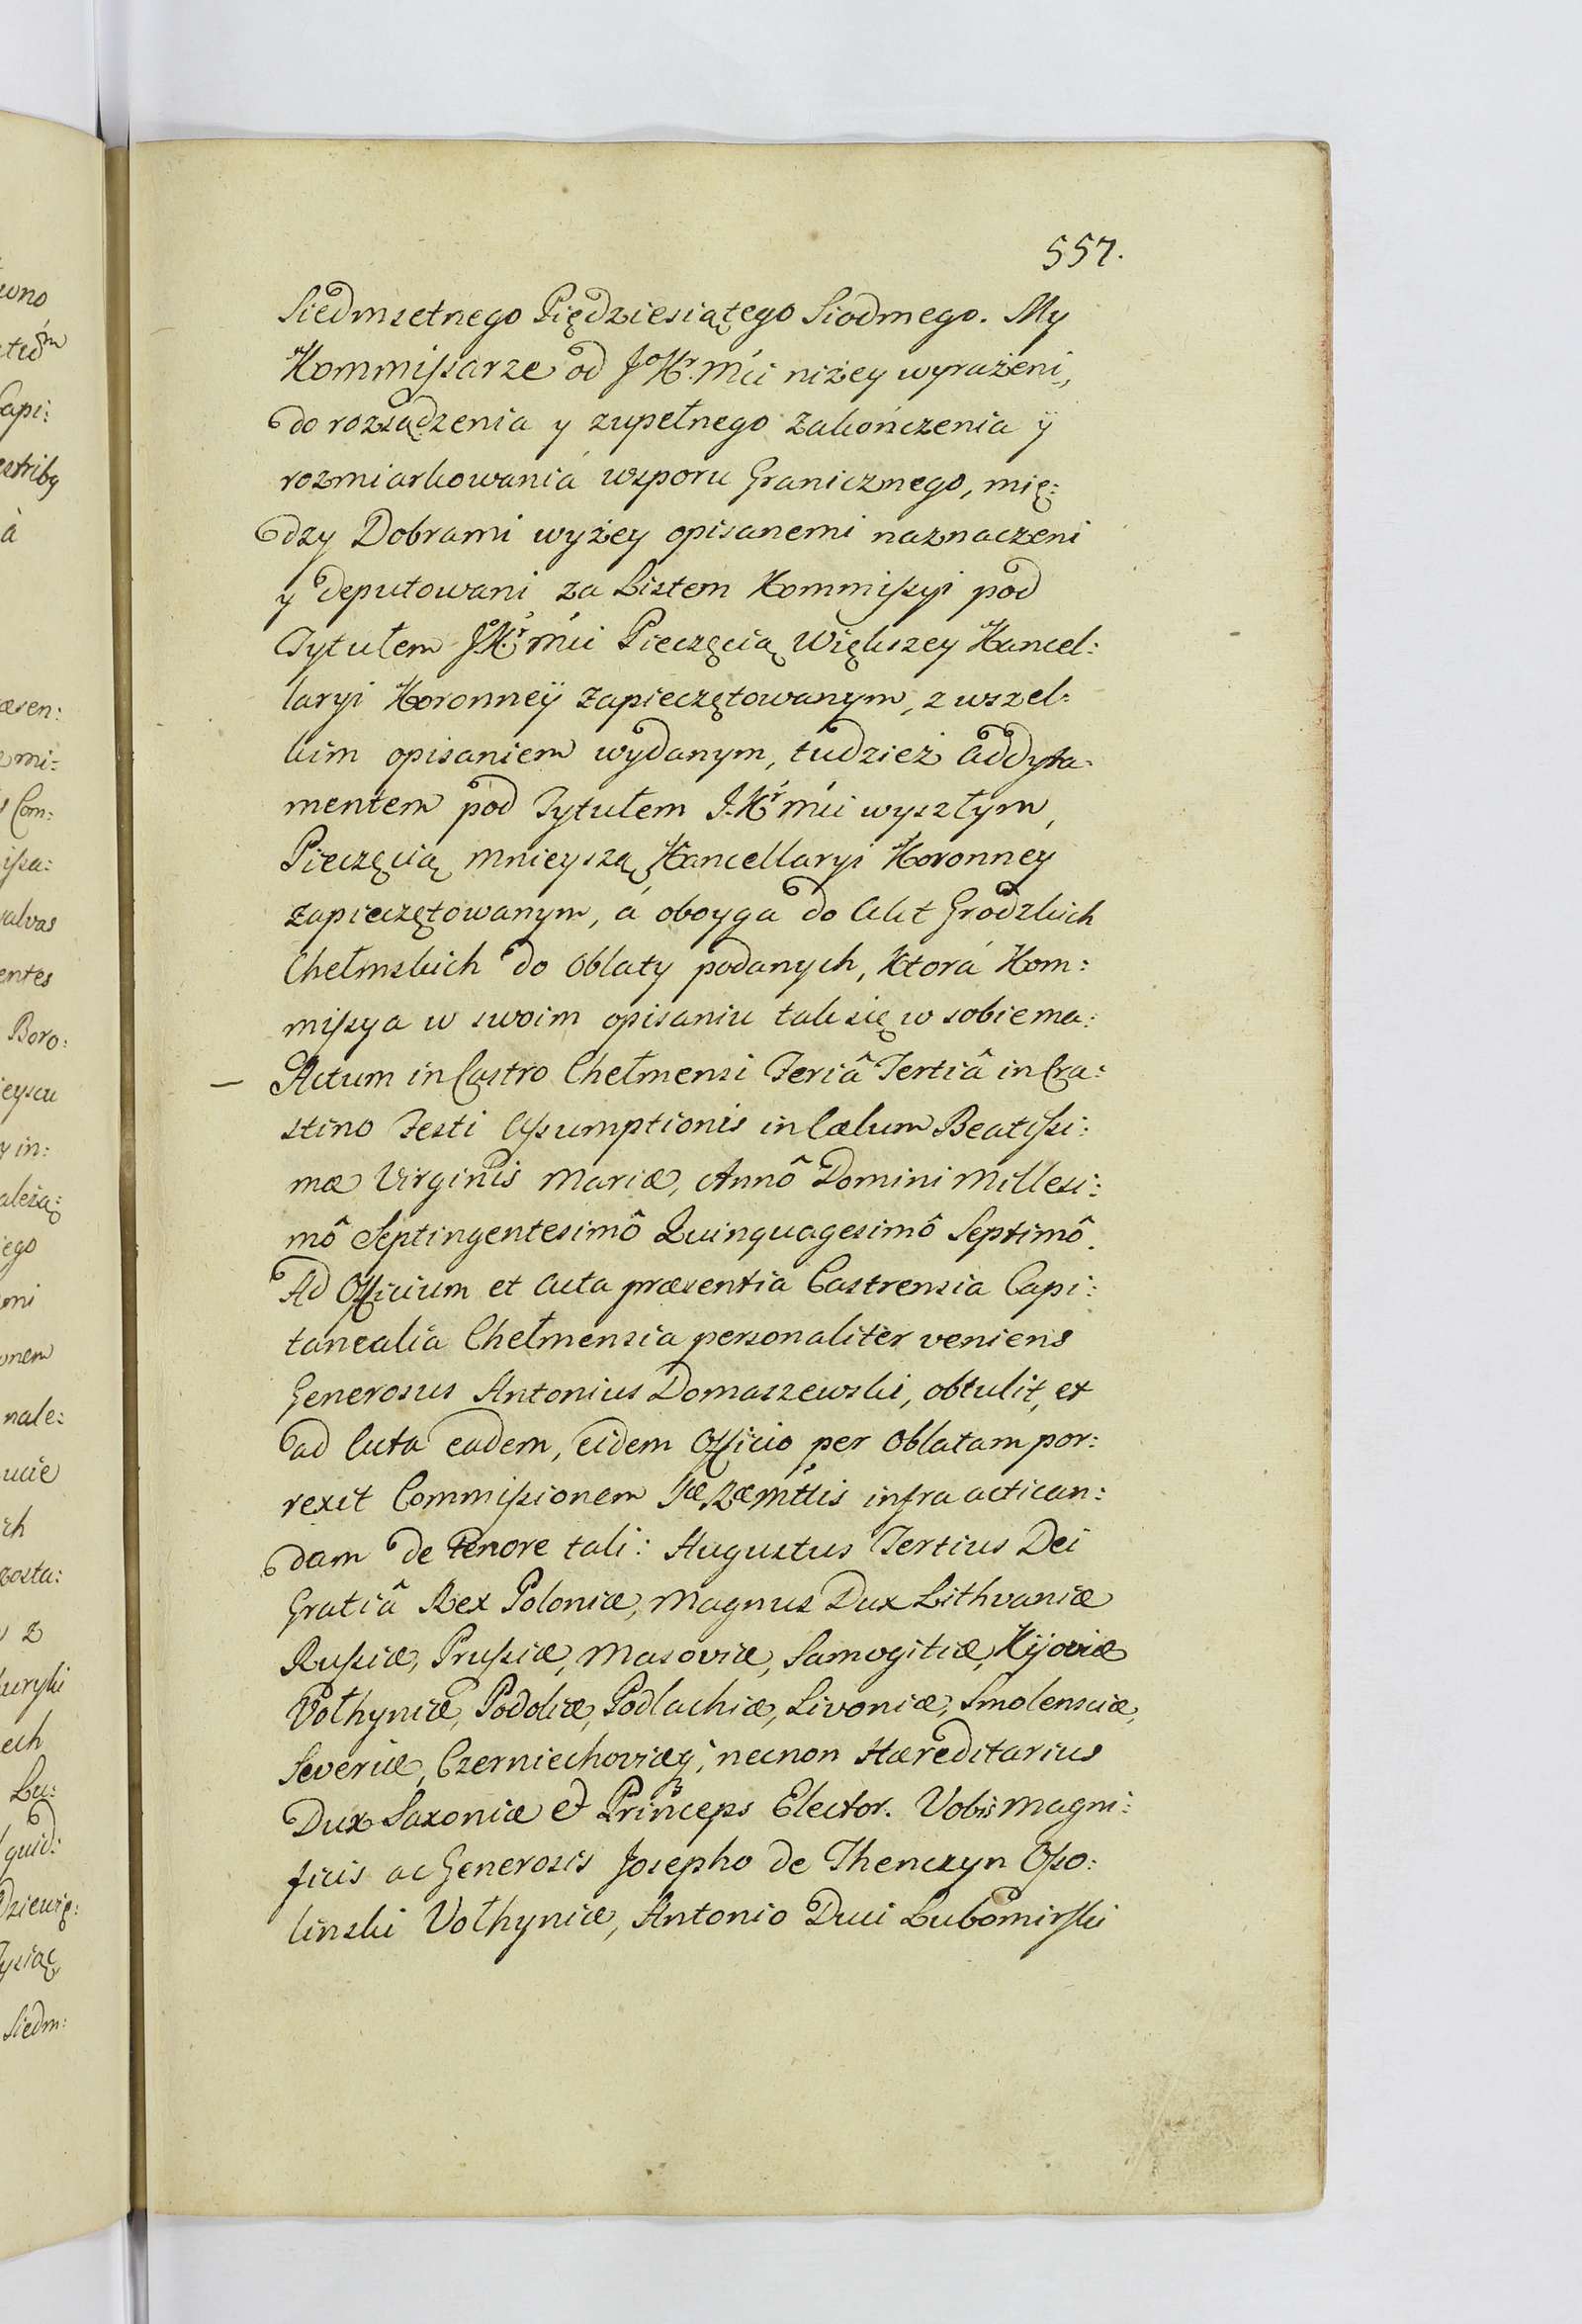 557.
Siedmsetnego Pięдziesiątego Siodmego. My
Kommissarze od JoKr. Mći niżey wyrażeni,
do rozsądzenia y zupełnego zakończenia ÿ
rozmiarkowaniá wsporu Granicznego, mię:
dzy Dobrami wyżey opisanemi naznaczeni
y deputowani za Listem Kommissyi pod
Tytułem J.Kr. Mći Pieczęcią Większey Kancel:
laryi Koronneÿ zapieczętowanym, z wszel:
kim opisaniem wydanym, tudzież Addyta:
mentem pod Tytułem J.Kr Mći wyszłym,
Pieczęcią mnieyszą Kancellaryi Koronney
zapieczętowanym, á oboyga do Akt Grodzkich
Chełmskich do Oblaty podanych, Ktorá Kom:
missya w swoim opisaniu tak się w sobie ma:
— Actum in Castro Chełmensi Feriâ Tertiâ in Cra:
stino Festi Assumptionis in Cælum Beatissi:
mæ Virginis Mariæ, Annô Domini Millesi:
mô Septingentesimô Quinquagesimô Septimô.
Ad Officium et Acta præsentia Castrensia Capi:
tanealia Chełmensia personaliter veniens
Generosus Antonius Domaszewski, obtulit, et
ad Acta eadem, eidem Officio per Oblatam por:
rexit Commissionem Sæ Ræ Mttis infra actican:
dam de tenore tali: Augustus Tertius Dei
Gratiâ Rex Poloniæ, Magnus Dux Lithvaniæ
Russiæ, Prussiæ, Masoviæ, Samogitiæ, Kijoviæ
Vołhyniæ, Podoliæ, Podlachiæ, Livoniæ, Smolensciæ,
Severiæ, Czerniechoviæq; necnon Hæreditarius
Dux Saxoniæ & Princeps Elector. Vobis Magni:
ficis ac Generosis Josepho de Thenczyn Osso:
linski Vołhyniæ, Antonio Duci Lubomirski